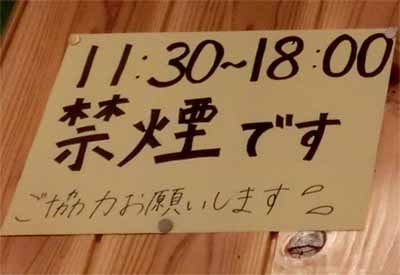 11:30~18:00
禁煙です
ご協力お願いします